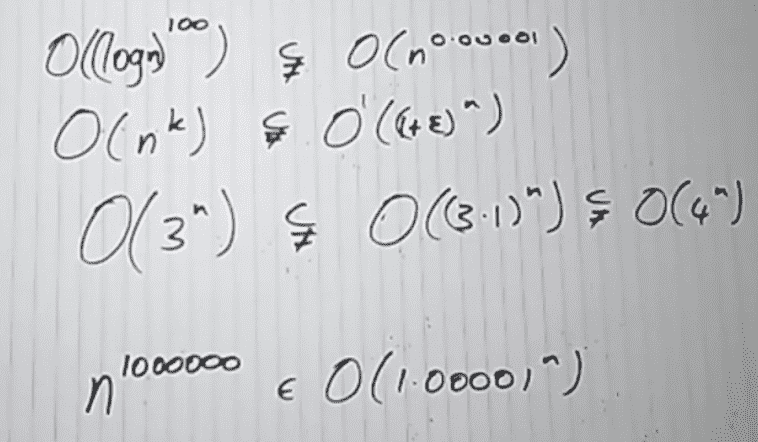 O((log n)^100) ⊊ O(n^0.00001)
O(n^k) ⊊ O((1+ε)^n)
O(3^n) ⊊ O((3.1)^n) ⊊ O(4^n)
n^1000000 ∈ O(1.00001^n)